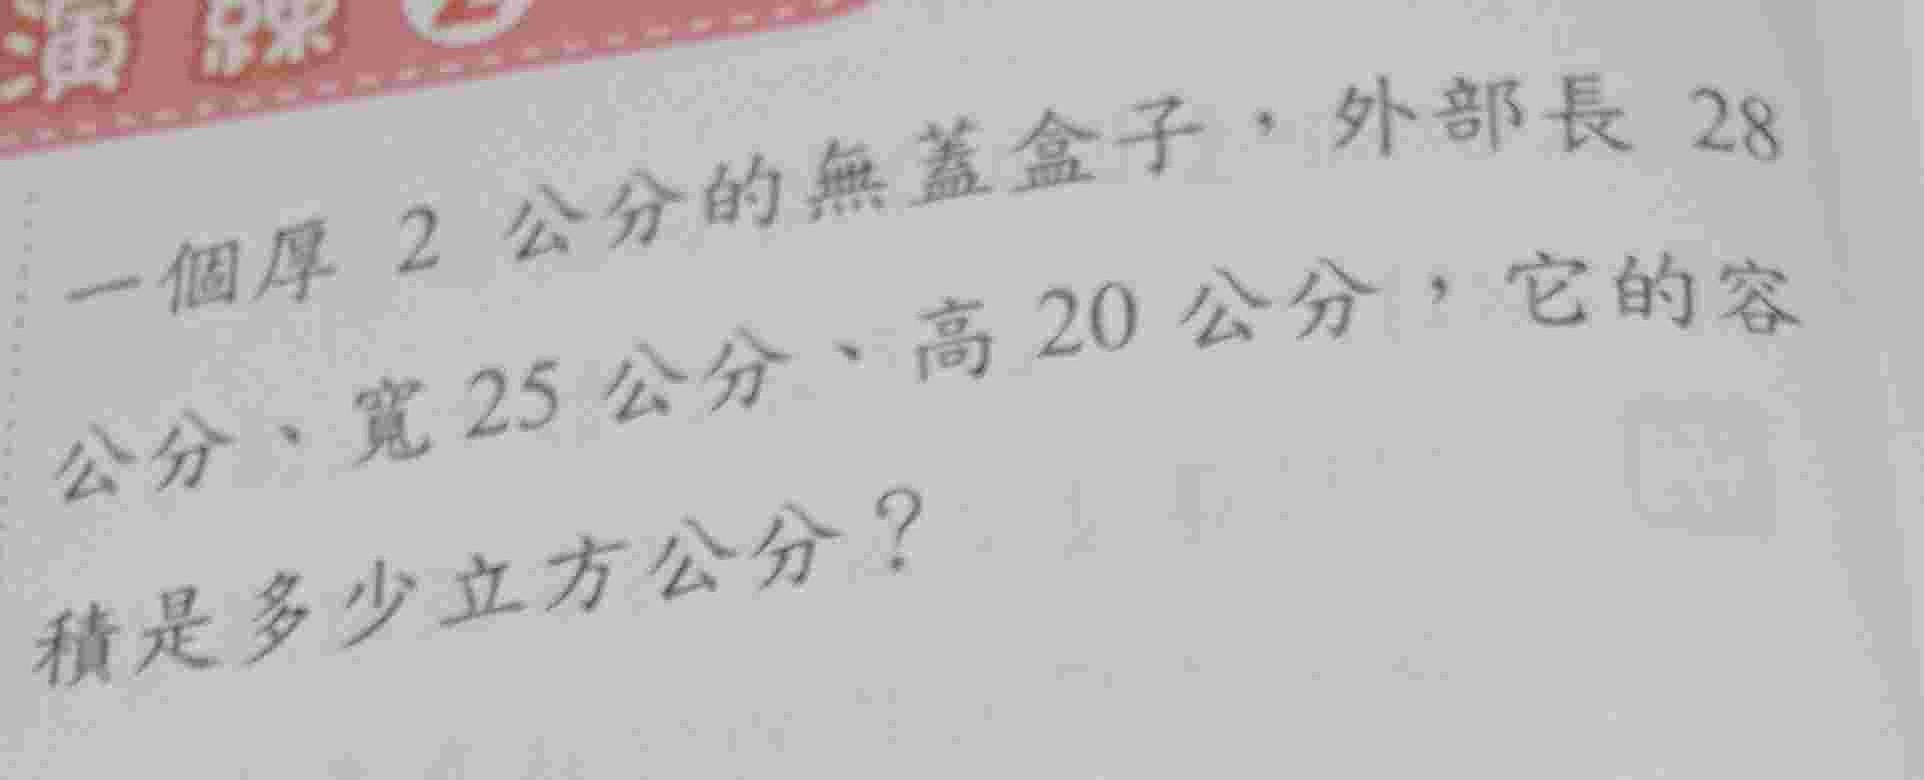 演練2
一個厚 2 公分的無蓋盒子，外部長 28
公分、寬 25 公分、高 20 公分，它的容
積是多少立方公分？